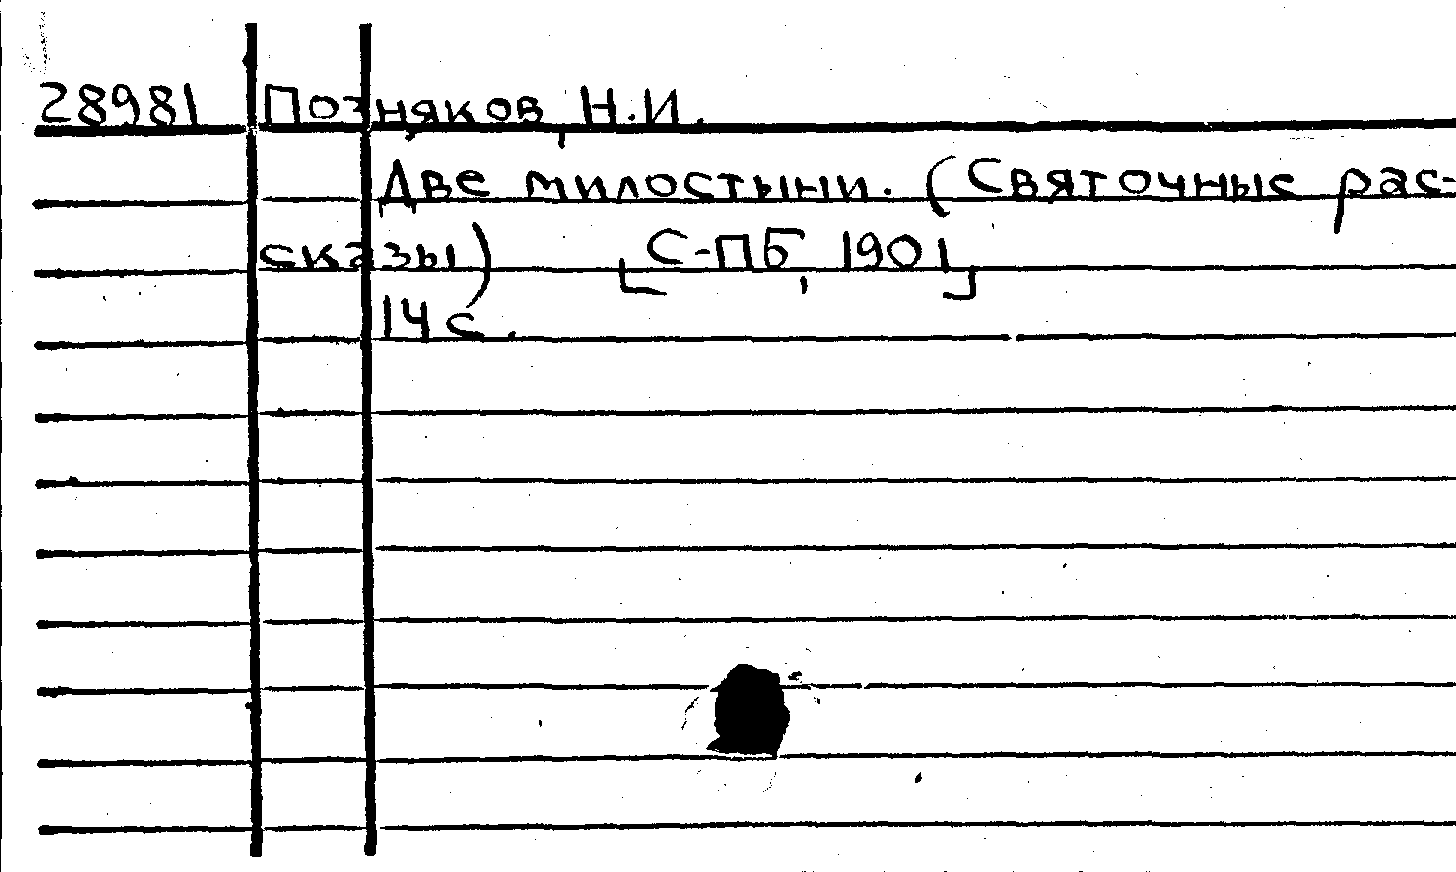 28981 Позняков, Н.И.
Две милостыни. (Святочные рас-
сказы) [С-ПБ, 1901]
14 с.